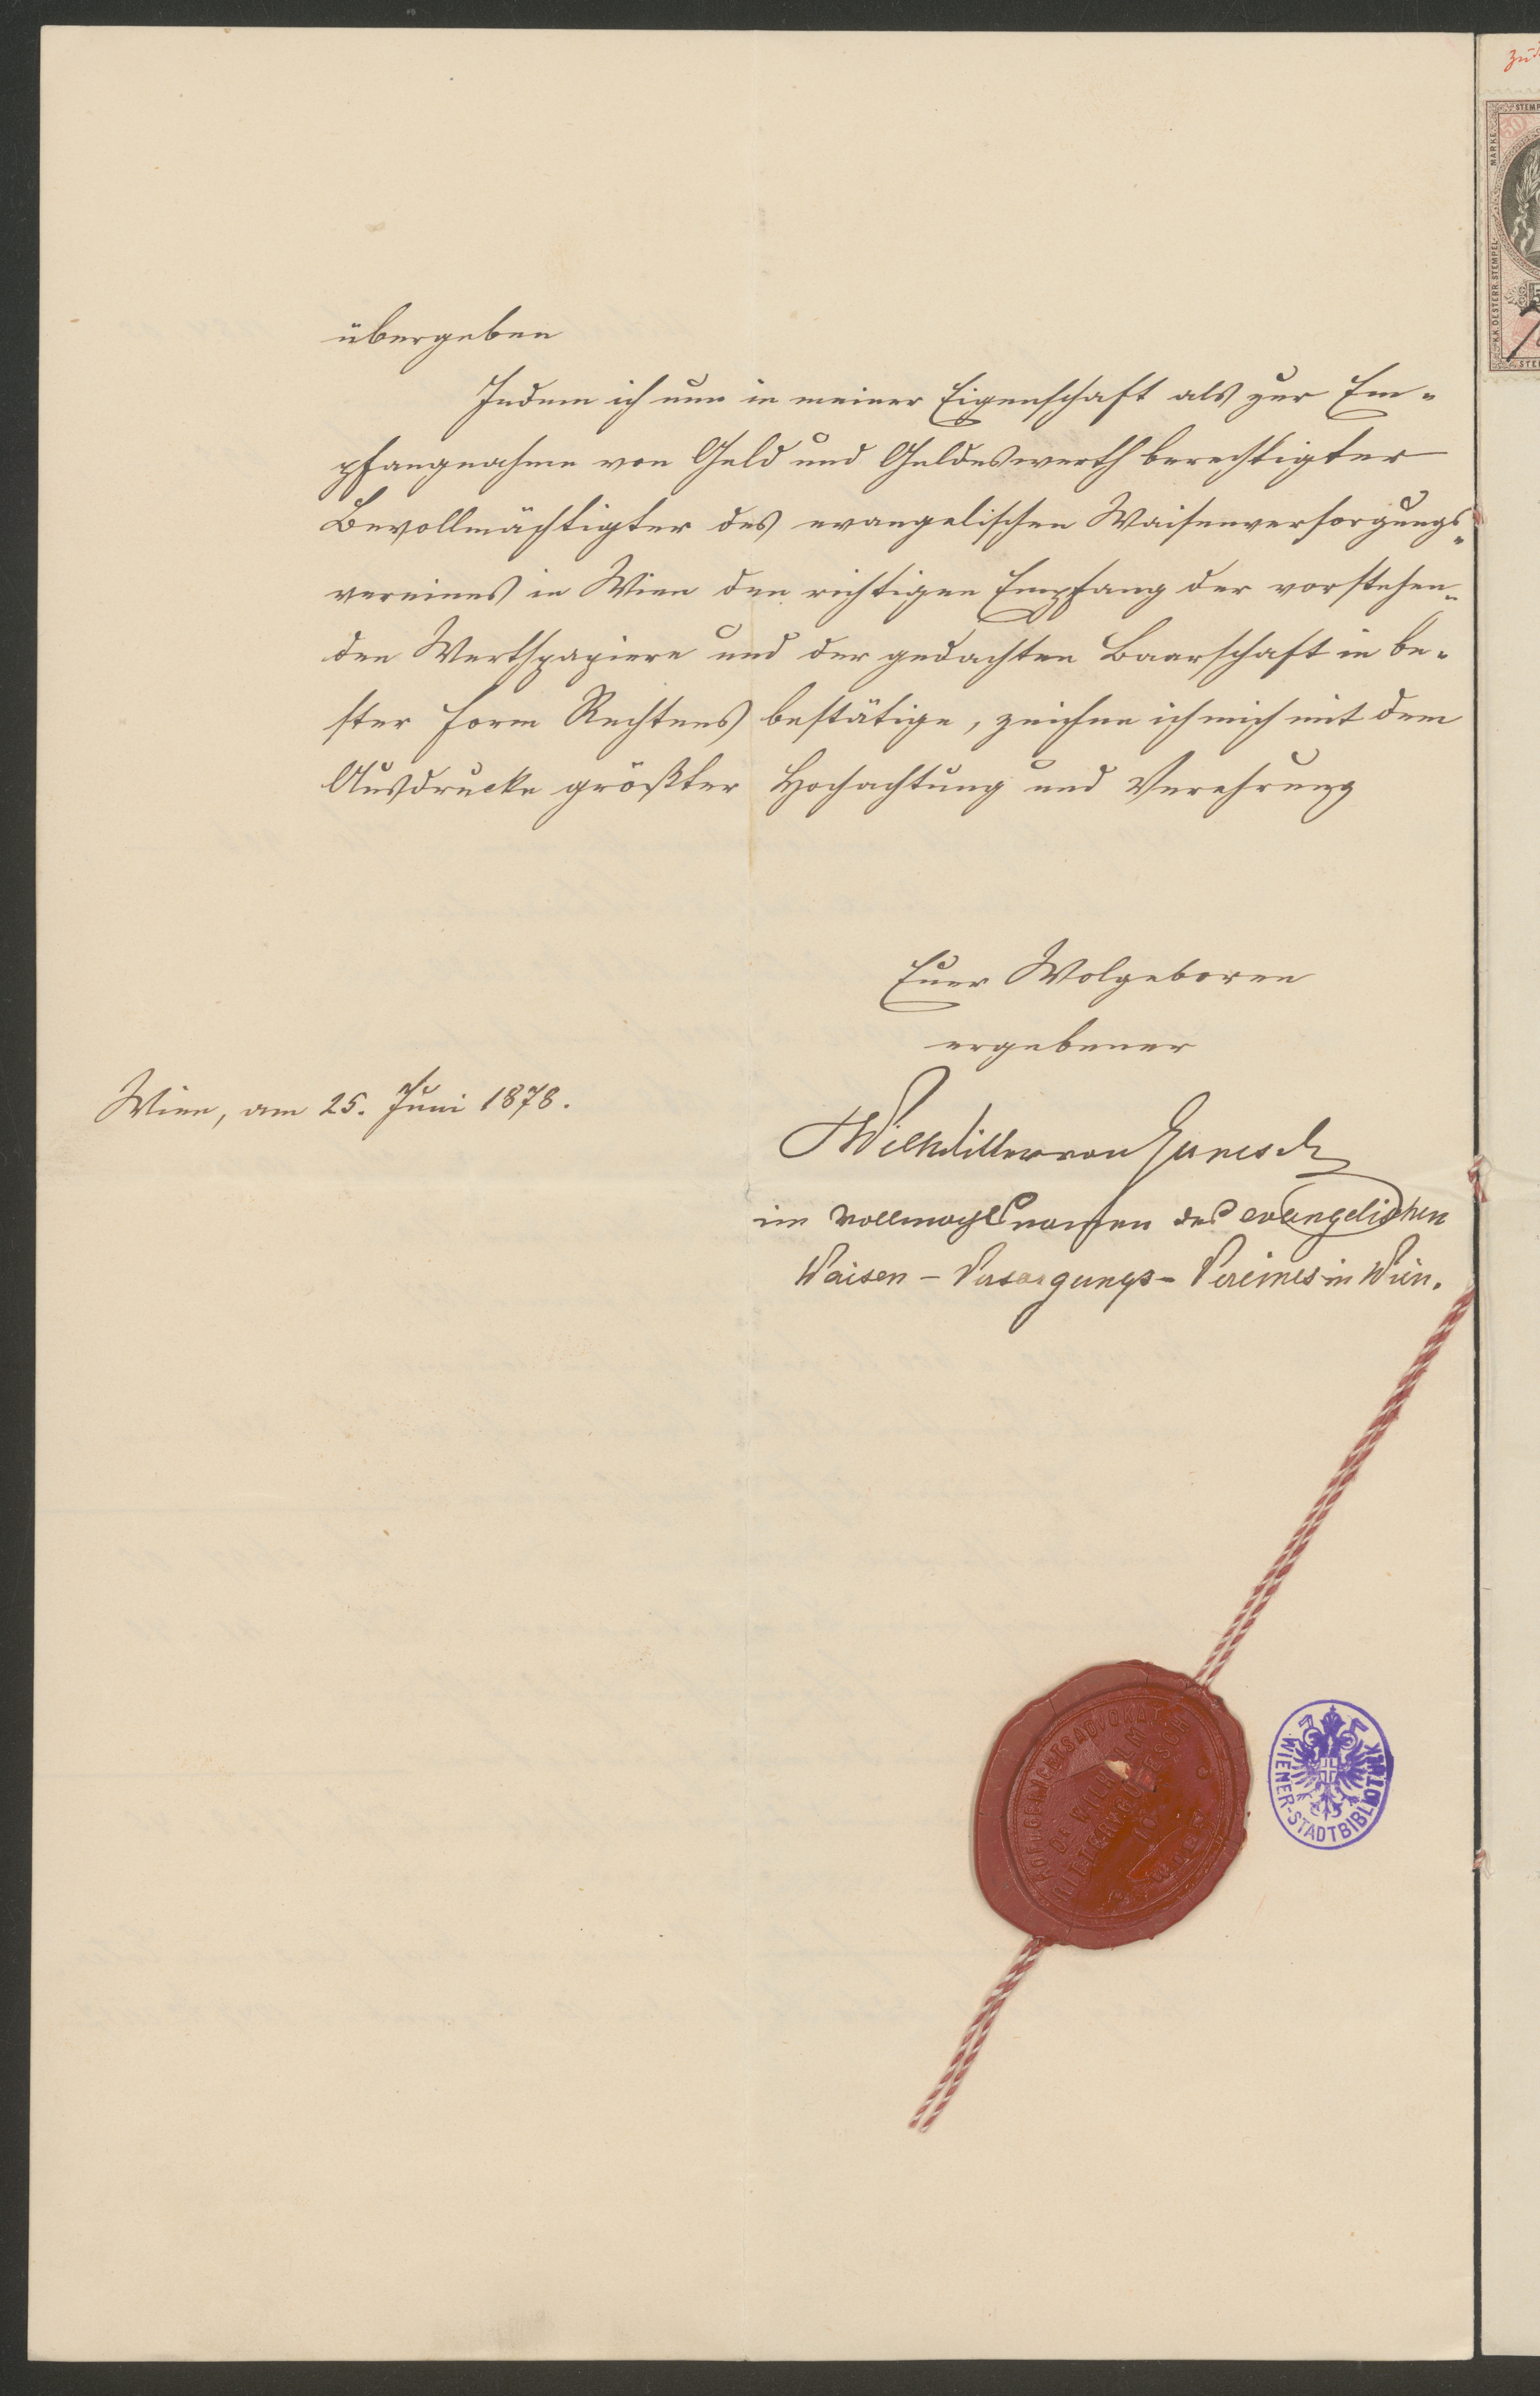 übergeben
Indem ich nun in meiner Eigenschaft als zur Em-
pfangnahme von Geld und Geldeswerth berechtigter
Bevollmächtigter des evangelischen Waisenversorgungs-
vereines in Wien den richtigen Empfang der vorstehen-
den Werthpapiere und der gedachten Baarschaft in be-
ster Form Rechtens bestätige, zeichne ich mich mit dem
Ausdrucke größter Hochachtung und Verehrung
Euer Wolgeboren
ergebener
Wien, am 25. Juni 1878.
Wilh Ritter von Gunesch
im Vollmachtsnamen des evangelischen
Waisen-Versorgungs-Vereines in Wien.
HOF & GERICHTSADVOKAT
DR WILHELM
RITTER VON GUNESCH
WIEN
WIENER-STADTBIBLIOTHEK
STEMP
MARKE
K.K. OESTERR. STEMPEL-
50
STE
zu